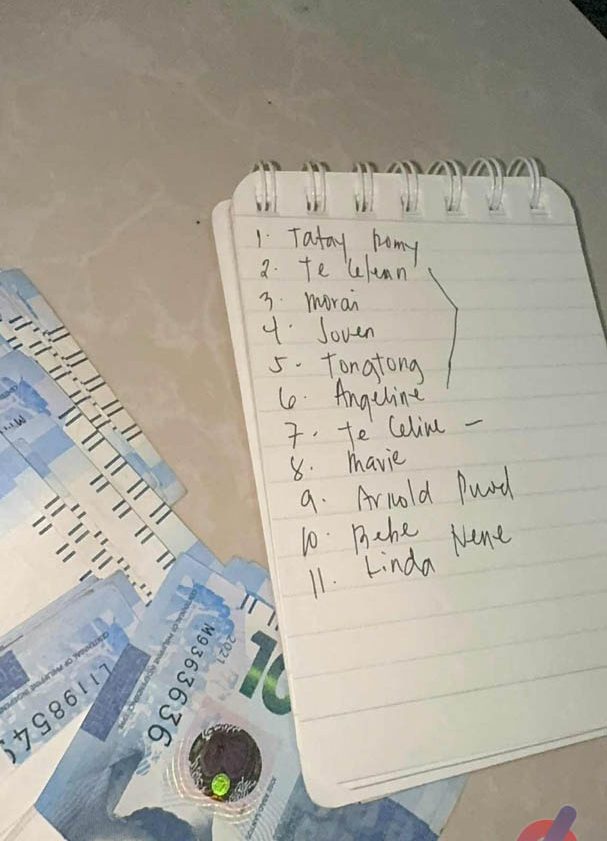 1. Tatay Romy
2. Te
3. Morai
4. Joven
5. Tongtong
6. Angeline
7. Te Celine –
8. Mavie
9. Arnold
10. Bebe Nene
11. Linda
2021
M9363636
10
L119854